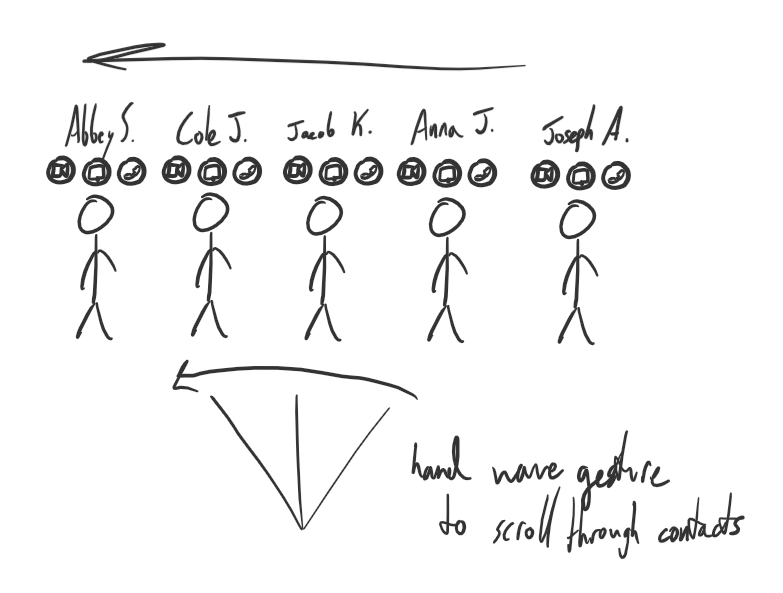 Abbey S. Cole J. Jacob K. Anna J. Joseph A.
hand wave gesture
to scroll through contacts